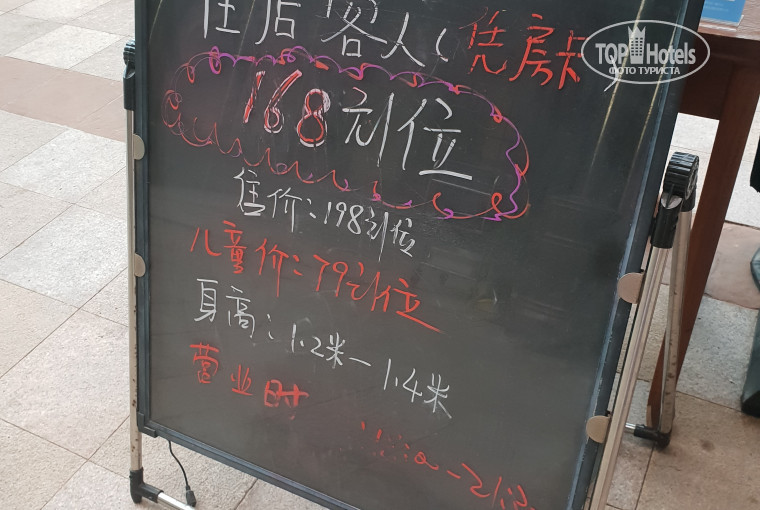 住店客人(凭房卡)
168元/位
售价:198元/位
儿童价:79元/位
身高:1.2米—1.4米
营业时
TOP Hotels
ФОТО ТУРИСТА